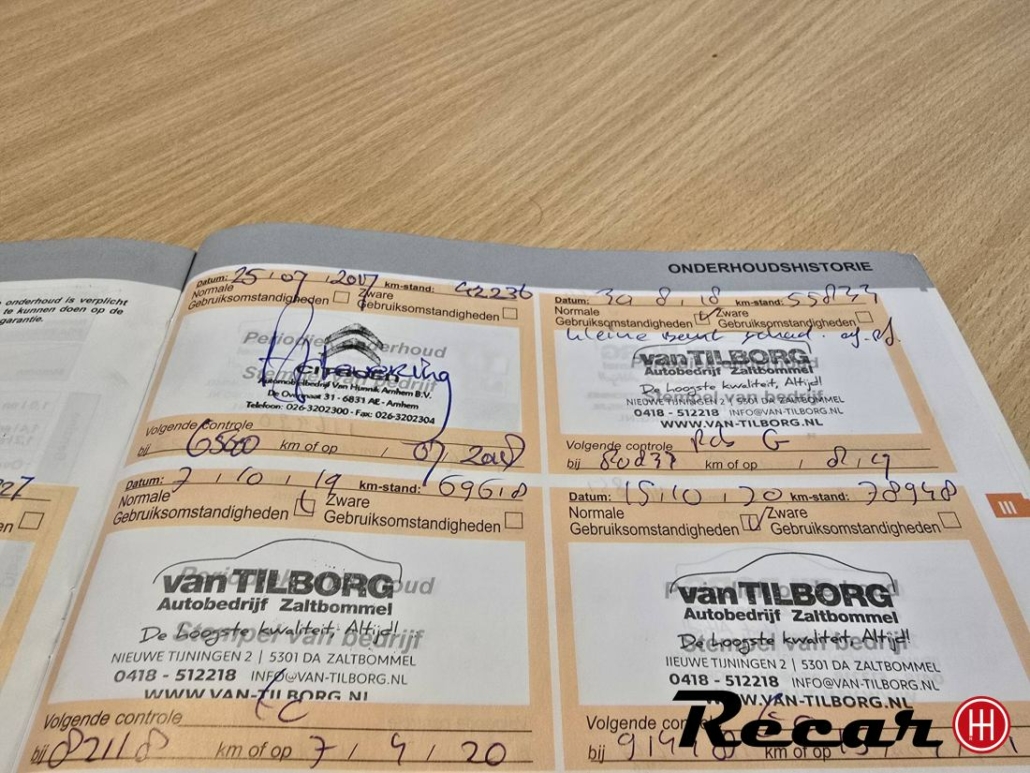 ONDERHOUDSHISTORIE
onderhoud is verplicht
te kunnen doen op de
garantie.
Datum: 25 / 07 / 2017 km-stand: 42236
Normale
Gebruiksomstandigheden
Zware
Gebruiksomstandigheden
Periodiek onderhoud
CITROËN
Stempel van bedrijf
Automobielbedrijf Van Hunnik Arnhem B.V.
De Overmaat 31 - 6831 AE - Arnhem
Telefoon: 026-3202300 - Fax: 026-3202304
Volgende controle
bij km of op / 07 / 2018
Datum: 30 8 18 km-stand: 55833
Normale
Gebruiksomstandigheden
Zware
Gebruiksomstandigheden
kleine beurt
vanTILBORG
Autobedrijf Zaltbommel
De hoogste kwaliteit, Altijd!
Stempel van bedrijf
NIEUWE TIJNINGEN 2 | 5301 DA ZALTBOMMEL
0418 - 512218 INFO@VAN-TILBORG.NL
WWW.VAN-TILBORG.NL
Volgende controle
bij km of op / 8 / 19
Datum: 7 / 10 / 19 km-stand: 69618
Normale
Gebruiksomstandigheden
Zware
Gebruiksomstandigheden
Periodiek onderhoud
vanTILBORG
Autobedrijf Zaltbommel
De hoogste kwaliteit, Altijd!
Stempel van bedrijf
NIEUWE TIJNINGEN 2 | 5301 DA ZALTBOMMEL
0418 - 512218 INFO@VAN-TILBORG.NL
WWW.VAN-TILBORG.NL
Volgende controle
bij 82118 km of op 7 / 4 / 20
Datum: 15 / 10 / 20 km-stand: 78948
Normale
Gebruiksomstandigheden
Zware
Gebruiksomstandigheden
vanTILBORG
Autobedrijf Zaltbommel
De hoogste kwaliteit, Altijd!
Stempel van bedrijf
NIEUWE TIJNINGEN 2 | 5301 DA ZALTBOMMEL
0418 - 512218 INFO@VAN-TILBORG.NL
WWW.VAN-TILBORG.NL
Volgende controle
bij km of op
III
Recar